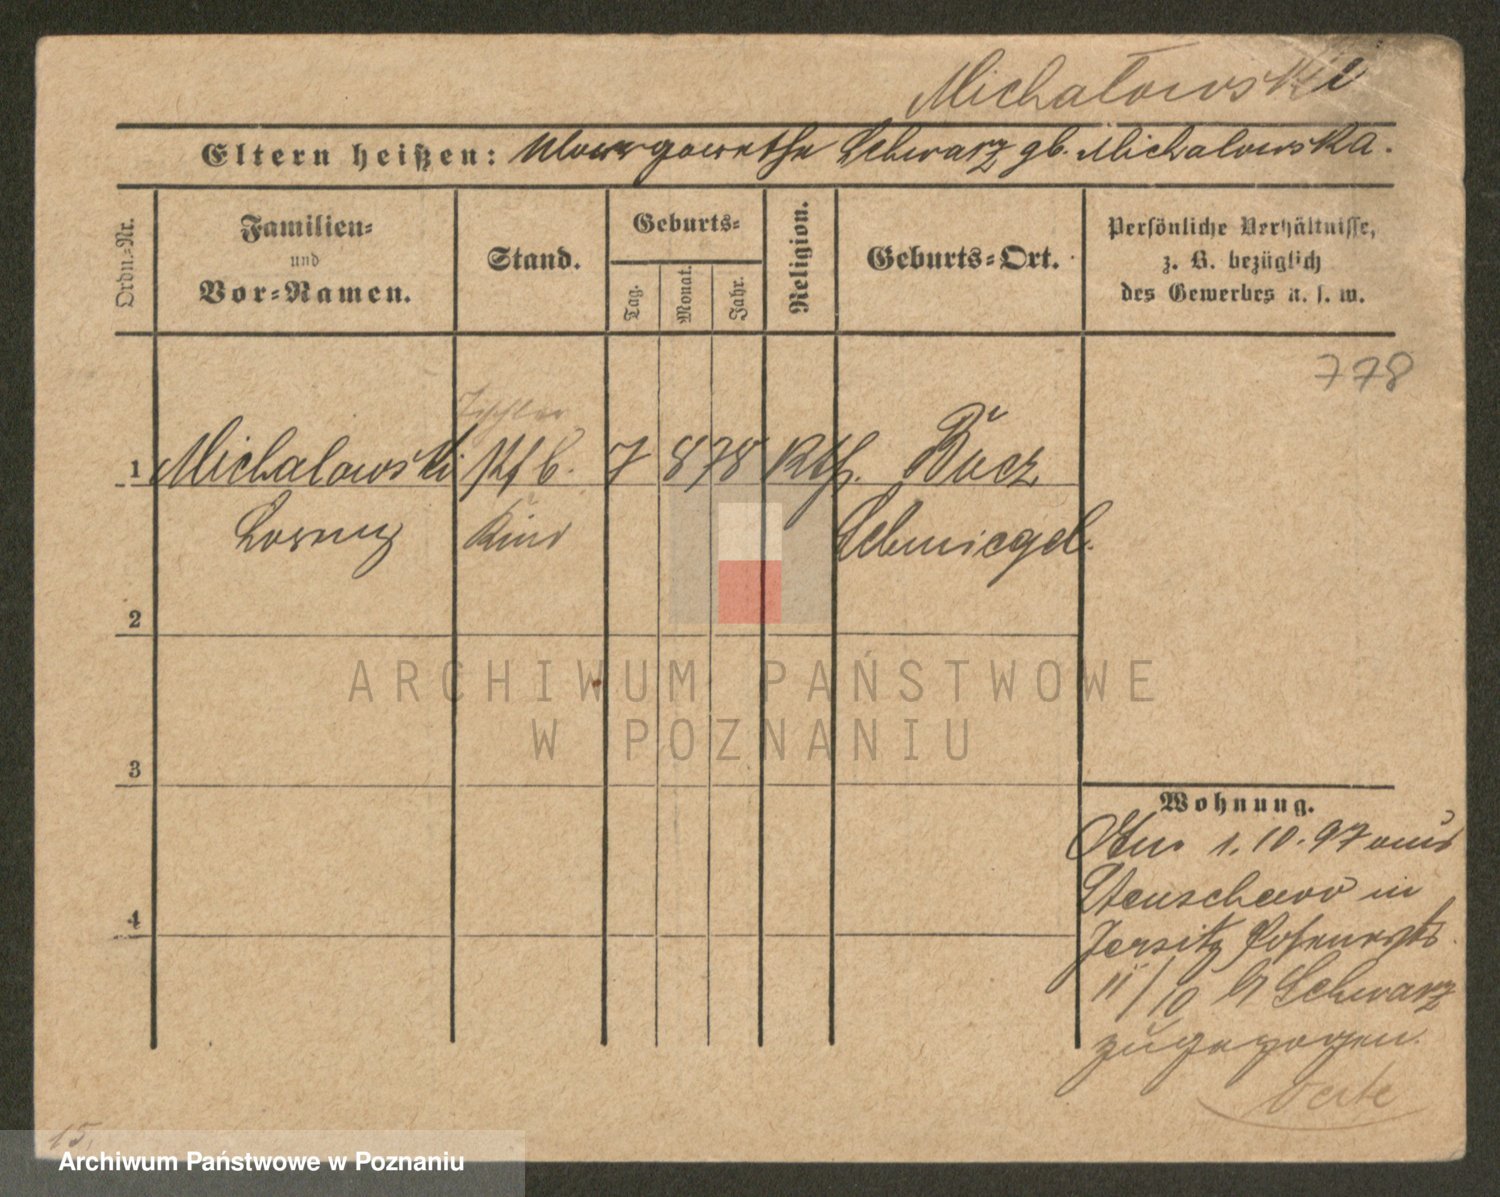 Michałowski
Eltern heißen: Margarethe Schwarz gb. Michalowska.
Ordn.-Nr.
Familien-
und
Vor-Namen.
Stand.
Geburts-
Tag.
Monat.
Jahr.
Religion.
Geburts-Ort.
Persönliche Verhältnisse,
z. B. bezüglich
des Gewerbes u. s. w.
778
Tischler
1 Michalowski 7 8 78 Kth. Bucz
Lorenz Kind Schmiegel.
2
3
4
Wohnung.
Am 1.10.97 aus
in
Jersitz
11/10 b/ Schwarz
zugezogen.
verte
15.
ARCHIWUM PAŃSTWOWE
W POZNANIU
Archiwum Państwowe w Poznaniu